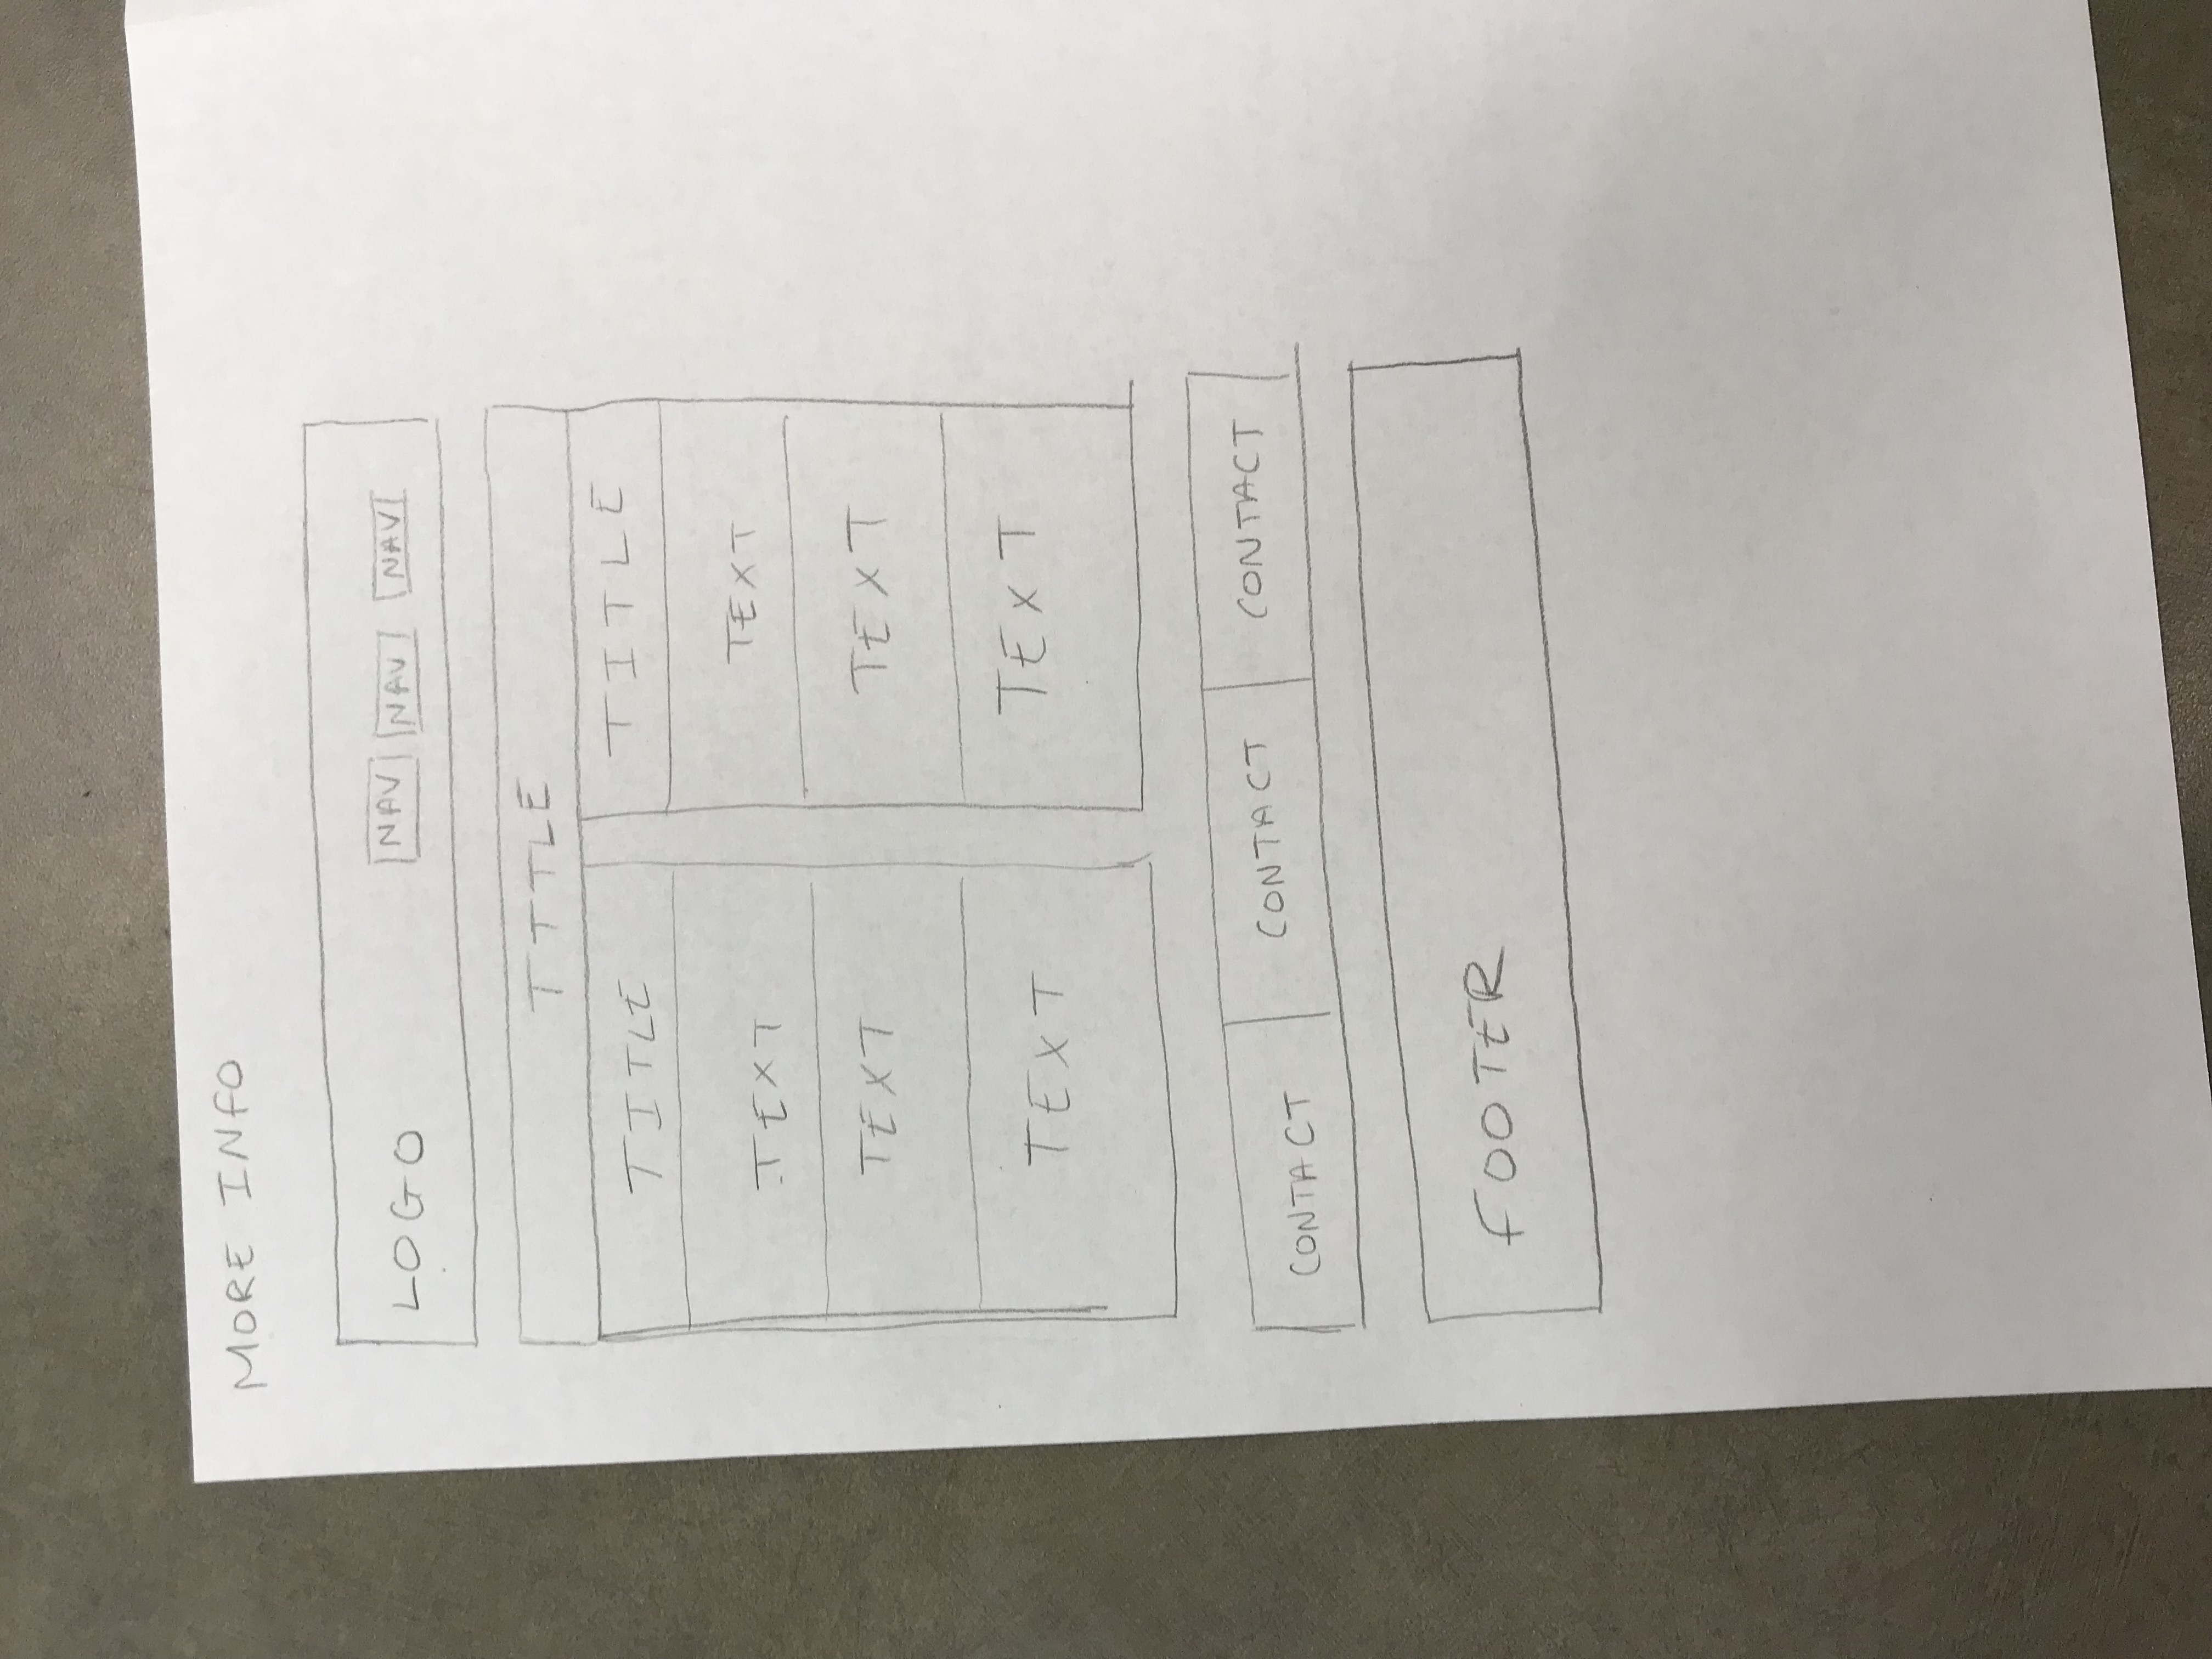 MORE INFO
LOGO NAV NAV NAV
TITLE
TITLE TITLE
TEXT TEXT
TEXT TEXT
TEXT TEXT
CONTACT CONTACT CONTACT
FOOTER